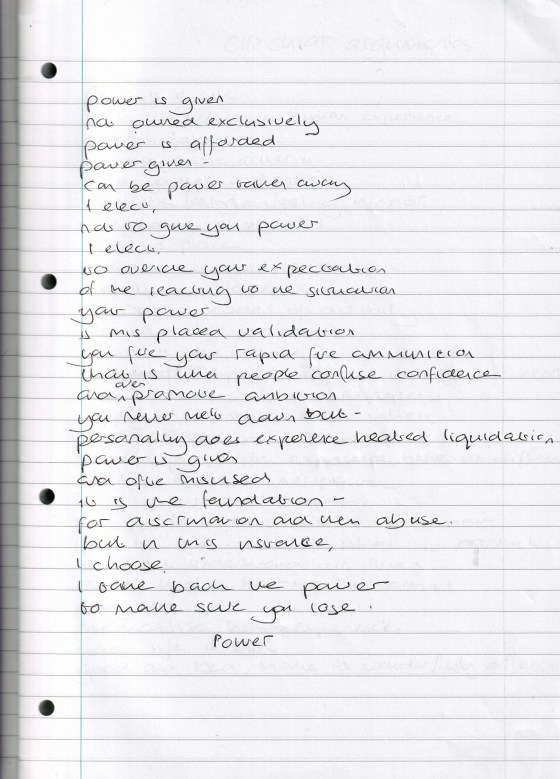 power is given
not owned exclusively
power is afforded
power given -
can be power taken away
I elect,
not to give you power
I elect.
to override your expectation
of me reacting to the situation
your power
is mis placed validation
you fire your rapid fire ammunition
that is when people confuse confidence
and over promote ambition
you never melt down but -
personality does experience heated liquidation
power is given
and often misused
it is the foundation -
for discrimation and then abuse.
but in this instance,
I choose.
I take back the power
to make sure you lose.
Power